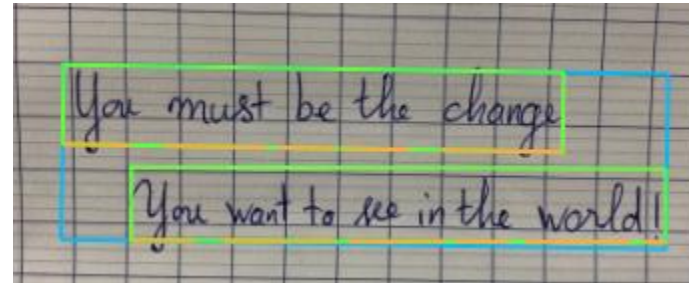 You must be the change
You want to see in the world!